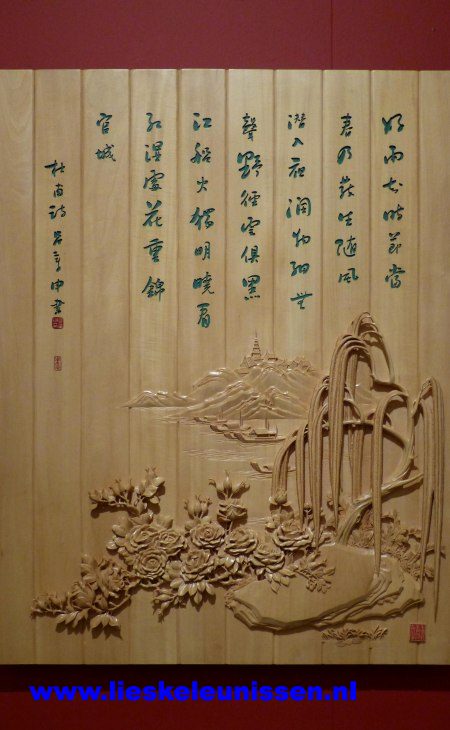 好雨知時節當
春乃發生隨風
潛入夜潤物細無
聲野徑雲俱黑
江船火獨明曉看
紅濕處花重錦
官城
杜甫詩呂章申書
www.lieskeleunissen.nl